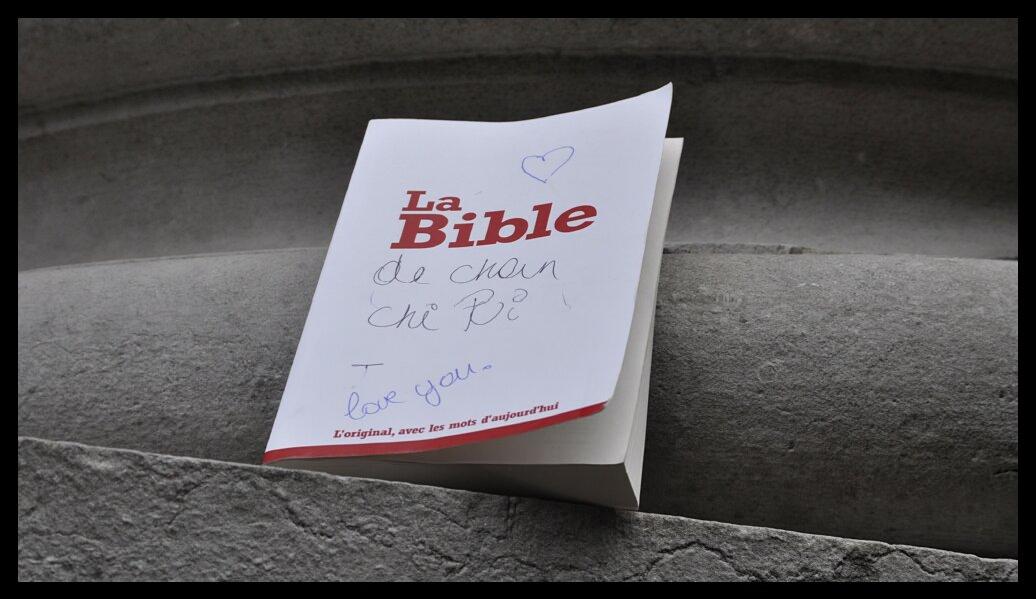 La
Bible
de chain
chi Ri
I
love you.
L'original, avec les mots d'aujourd'hui